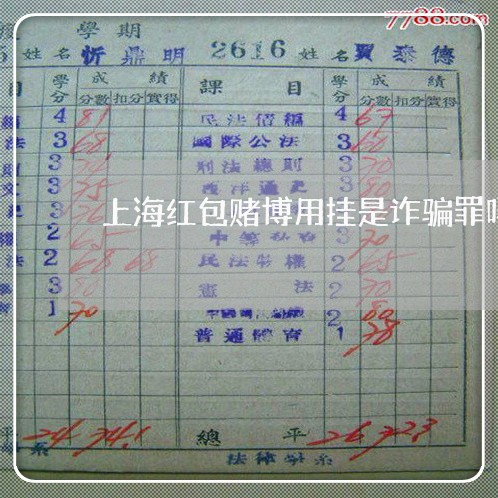 7788.com
學期
姓名 忻鼎明 2616 姓名 賈泰德
目 學分 成績 課目 學分 成績
分數 扣分 實得 分數 扣分 實得
4 81 民法債編 4 67
法 3 68 國際公法 3 60
3 刑法總則 3 70
文 3 75 西洋通史 3 80
3
上海红包赌博用挂是诈骗罪
2 65 3 70
法 2 68 68 民法物權 2 65
3 80 憲法 2 70
育 1 70 2 80
普通體育 1 78
平 24 74.1 總平 26 72.3
系 法律學系